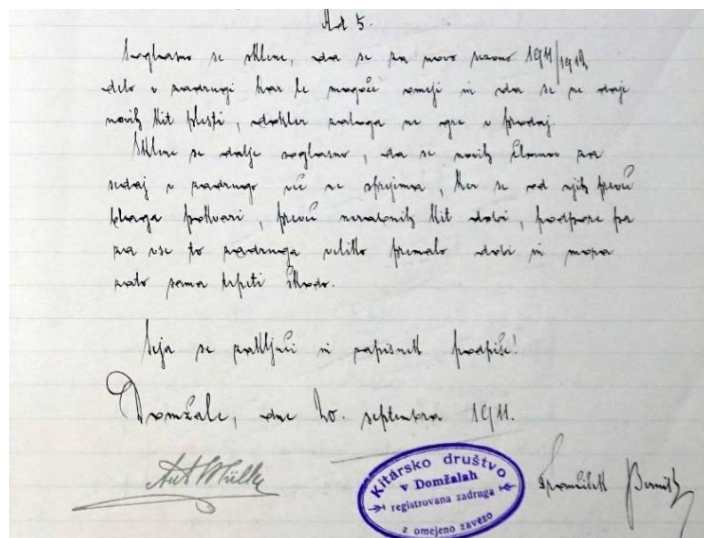 Ad 5.
Soglasno se sklene, da se za novo sezono 1911/1912
delo v zadrugi kar le mogoče omeji in da se ne daje
novih kit plesti, dokler zaloga ne gre v prodaj.
Sklene se dalje soglasno, da se novih članov za
sedaj v zadrugo več ne sprejima, ker se od njih preveč
blaga pokvari, preveč nerabnih kit dobi, podpore pa
za vse to zadruga veliko premalo dobi in mora
zato sama trpeti škodo.
Seja se zaključi in zapisnik podpiše!
Domžale, dne 20. septembra 1911.
Ant Müller
Kitarsko društvo
v Domžalah
registrovana zadruga
z omejeno zavezo
Frančišek